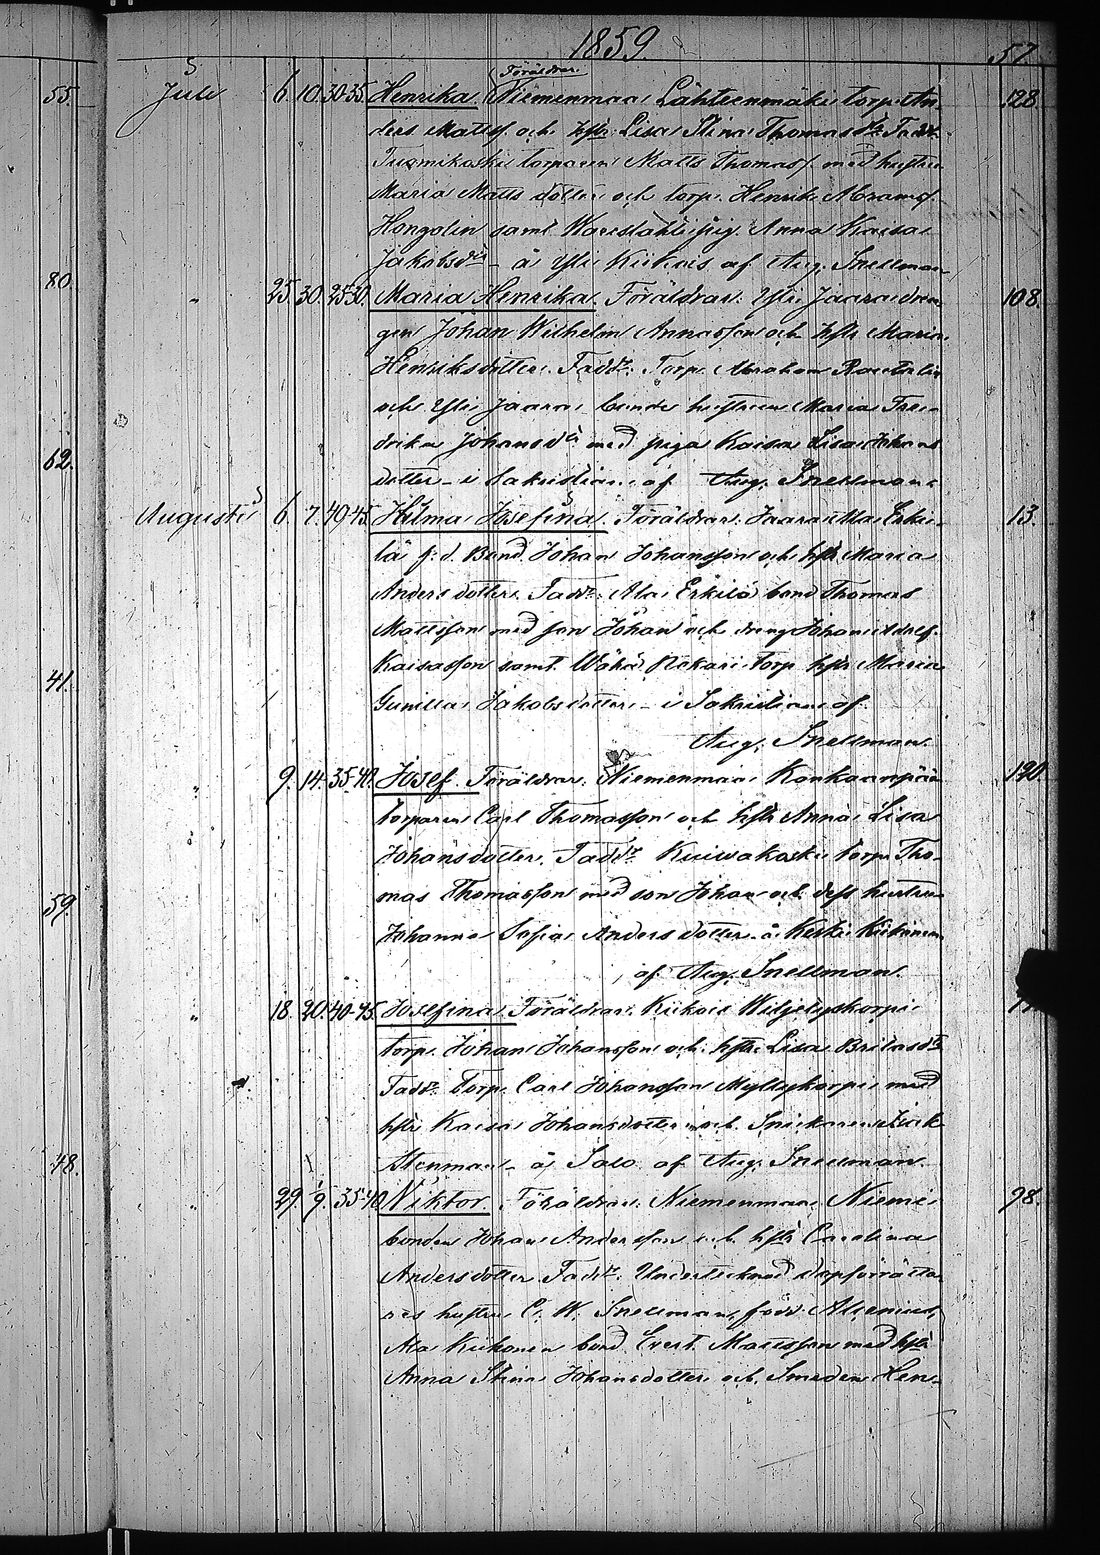 1859.
57
5
55. Juli 6. 10. 30-35. Henrika. Föräldrar: Niemenmaa Lähteenmäki torp. An- 128.
ders Mattss. och hstr Lisa Stina Thomasdr. Fadd.
torparen Matts Thomass. med hustru
Maria Mattsdotter och torp. Henrik Abramss.
Hongolin samt pig. Anna Kaisa
Jakobsdr - å Yli Kiikois af Aug. Snellman
80. " 25. 30. 25-30. Maria Henrika. Föräldrar: Yli Jaara dren-
108.
gen Johan Wilhelm Annasson och hstr Maria
Henriksdotter. Fadd.r Torp. Abraham
och Yli Jaara bonde hustrun Maria Fre-
drika Johansdr med piga Kaisa Lisa Johans
62.
dotter - i Sakristian af Aug. Snellman
Augusti 6. 7. 40-45. Hilma Josefina. Föräldrar: Jaara Ala Erki- 13.
lä f.d. Bond. Johan Johansson och hstr Maria
Andersdotter. Fadd.r Ala Erkilä bond Thomas
Mattsson med son Johan och dreng Johan Adolf
41. Kaisasson samt Wähä torp. hstr Maria
Gunilla Jakobsdotter - i Sakristian af
Aug. Snellman.
" 9. 14. 35-40. Josef. Föräldrar: Niemenmaa Konkaanpää 190.
torparen Carl Thomasson och hstr Anna Lisa
Johansdotter. Fadd.r Kuiwakoski torp. Tho-
59. mas Thomasson med son Johan och dess hustru
Johanna Sofia Andersdotter å Keski Kiikoinen
af Aug. Snellman.
" 18. 20. 40-45. Josefina. Föräldrar: Kiikois
torp. Johan Johansson och hstr Lisa Britasdr
Fadd.r Torp. Carl Johansson Myllykorpi med
hstr Kaisa Johansdotter och Snickaren
48. Stenman - å Salo af Aug. Snellman.
29. 9. 35-40. Niktor. Föräldrar: Niemenmaa Niemi 98.
bonden Johan Andersson och hstr Carolina
Andersdotter Fadd.r Undertecknad dopförrätta-
res hustru C. W. Snellman, född Alcenius,
Ala Kiikonen bond. Evert Mattsson med hstr
Anna Stina Johansdotter och Smeden Hen-